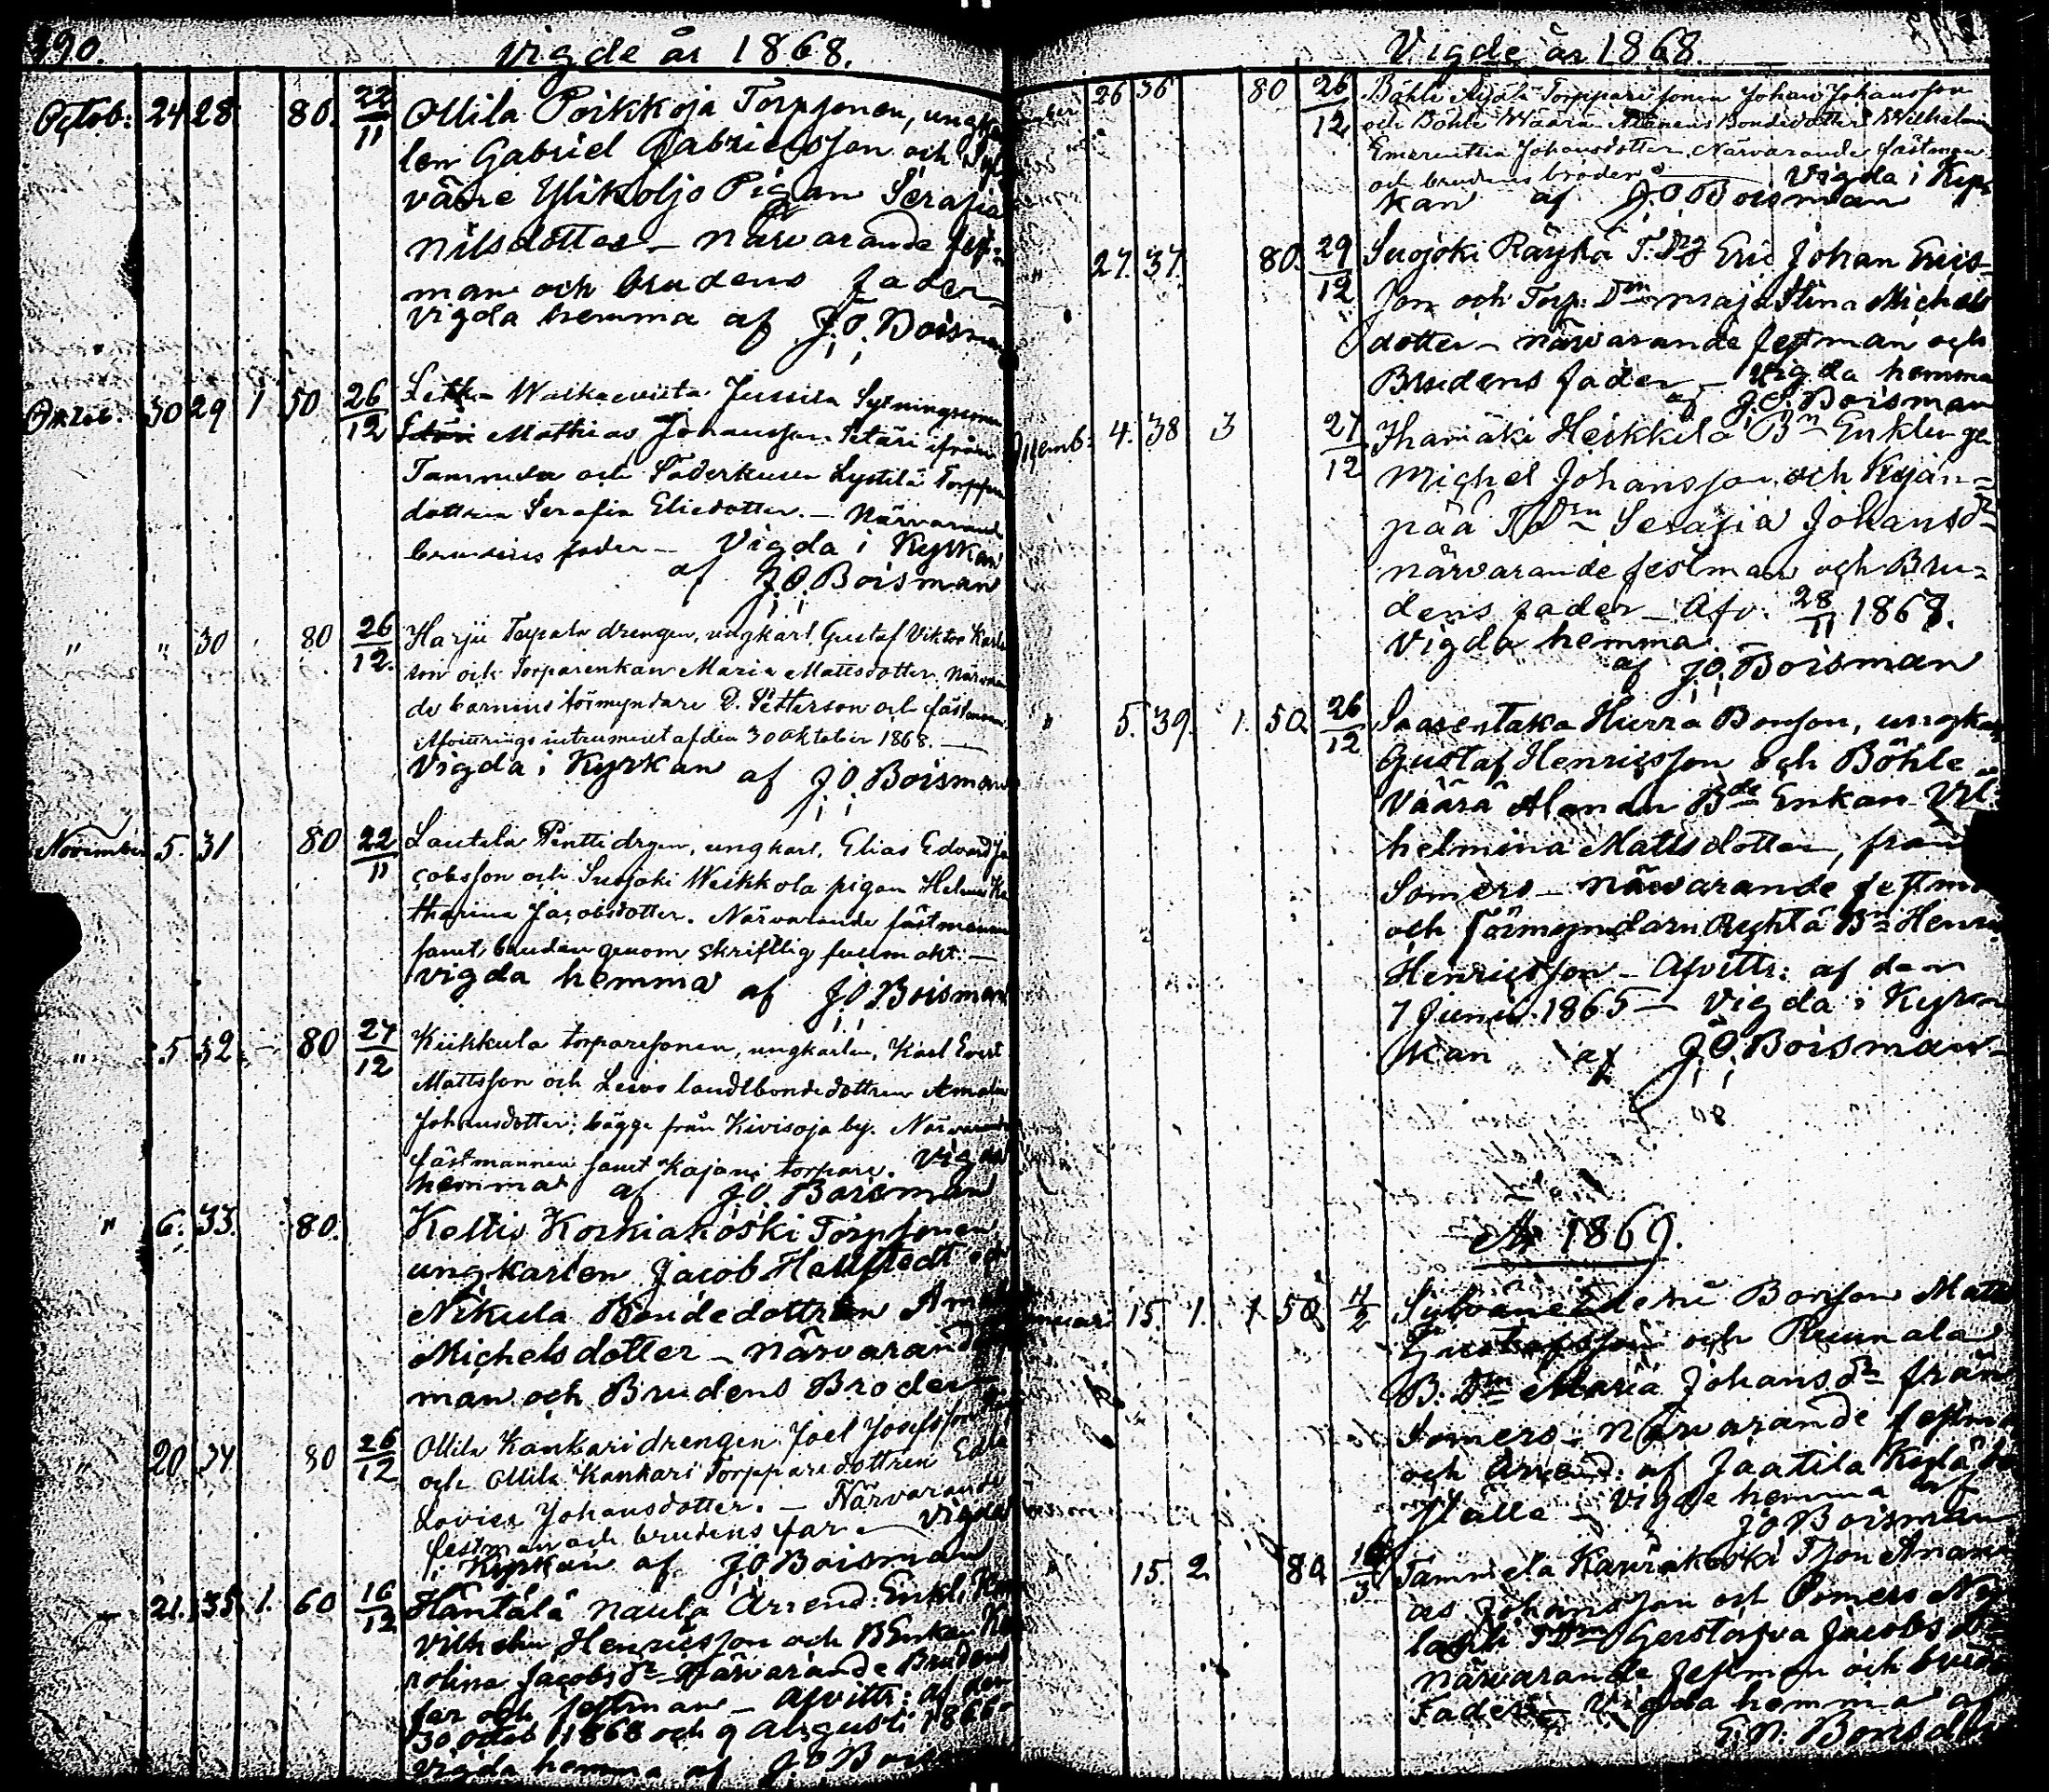 190.
Vigde år 1868.
Octob: 24 28 80. 22/11 Ollila Poikkoja Torpsonen, ungkar
len Gabriel Gabrielsson och
väre Ylikoljo Pigan Serafia
Nilsdotter – närvarande fest-
man och brudens fader –
vigda hemma af J.O. Boisman
Oktob. 30 29 1 50 26/12 Letku Walkeavista Jussila Sytningsman
Mathias Johansson Setäri ifrån
Tammela och Söderkulla Lystilä Torppare
dottren Serafia Eliedotter. – Närvarande
brudens fader – Vigda i Kyrkan
af J.O. Boisman
" " 30 80 26/12. Harju Torpare drengen, ungkarl Gustaf Viktor Karls
son och Torparenkan Maria Mattsdotter. Närvaran
de barnens förmyndare D. Petterson och fästmannen
Afvittrings instrument af den 30 Oktober 1868. –
Vigda i Kyrkan af J.O. Boisman
November 5. 31 80 22/11 Lautela Pentti drgen, ungkarl, Elias Edvard Ja
cobsson och Suojoki Weikkola pigan Helena Ka
tharina Jacobsdotter. Närvarande fästmannen
samt bruden genom skriftlig fullmakt. –
Vigda hemma af J.O. Boisman
" 5 32 – 80 27/12 Kiikkula torparesonen, ungkarlen, Karl Evert
Mattsson och Levo landtbondedottren Amalia
Johansdotter; bägge från Kivisoja by. Närvarande
fästmannen samt Kajani torpare. Vigda
hemma af J.O. Boisman
" 6. 33. 80. Keltis Korkiakoski Torpsonen
ungkarlen Jacob Hallstedt och
Nikula Bondedottren
Michelsdotter – närvarande
man och Brudens Broder –
" 20 34 80 26/12 Ollila Kankari drengen Joel Josefsson
och Ollila Kankari Torppare dottren Edla
Lovisa Johansdotter. – Närvarande
festman och brudens far – Vigda
i Kyrkan af J.O. Boisman
– 21. 35. 1. 60 16/12 Häntälä Naula Arrend: Enkl.
Vilhelm Henricsson och B Enkan Ka
rolina Jacobs dr närvarande Brudens
far och festman – Afvittr: af den
30 Octob 1868 och 9 Augusti 1866
Vigda hemma af J.O. Bois
Vigde år 1868.
26 36 80 26/12 Böhle Torppare sonen Johan Johansson
och Böhle Wäärä Alanens Bondedotter Wilhelmina
Emerentia Johansdotter. Närvarande fästman
och brudens broder. – Vigda i Kyr
kan af J.O. Boisman
" 27. 37. 80. 29/12 Suojoki Räyhä T. Dng Eric Johan Erics-
son och Torp: Drn Maja Stina Michels
dotter – närvarande festman och
Brudens fader – Vigda hemma
af J.O. Boisman
Decemb: 4. 38 3 27/12 Ihamäki Heikkilä Bn Enklingen
Michel Johansson och Kujan=
pää T Drn Serafia Johansdr
närvarande festman och Bru=
dens fader – Afv. 28/11 1868.
Vigda hemma. –
af J.O. Boisman
" 5. 39. 1. 50. 26/12 Saarentaka Hurra Bonson, ungkarl
Gustaf Henricsson och Böhle
Väärä Alanen Bde Enkan Vil
helmina Mattsdotter, från
Somero – närvarande festman
och Förmyndarn Ryhtä Bn Henric
Henricsson – Afvittr: af den
7 Junii 1865 – Vigda i Kyr
kan af J.O. Boisman –
År 1869.
Januari 15. 1. 1 50. 11/2 Sylvänä Bonson Matts
Gustafsson och Ruunala
B. Drn Maria Johans dr från
Somero – Närvarande festman
och Arrend: af Jaatila Kylä
Hälle – Vigde hemma af
J.O. Boisman
" 15. 2. 80. Tammela Karviakoski T Son Anani
as Johansson och Somero
T Drn Gerstorfva Jacobs Dr
närvarande festman och brudens
Fader – Vigda hemma af